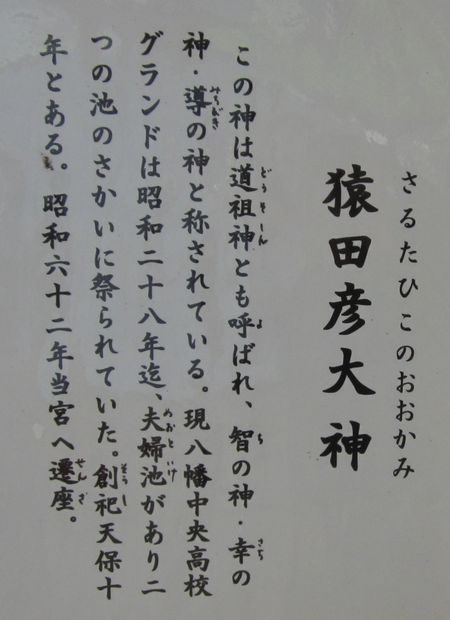 さるたひこのおおかみ
猿田彦大神
この神は道祖神とも呼ばれ、智の神・幸の
神・導の神と称されている。現八幡中央高校
グランドは昭和二十八年迄、夫婦池があり二
つの池のさかいに祭られていた。創祀天保十
年とある。昭和六十二年当宮へ遷座。